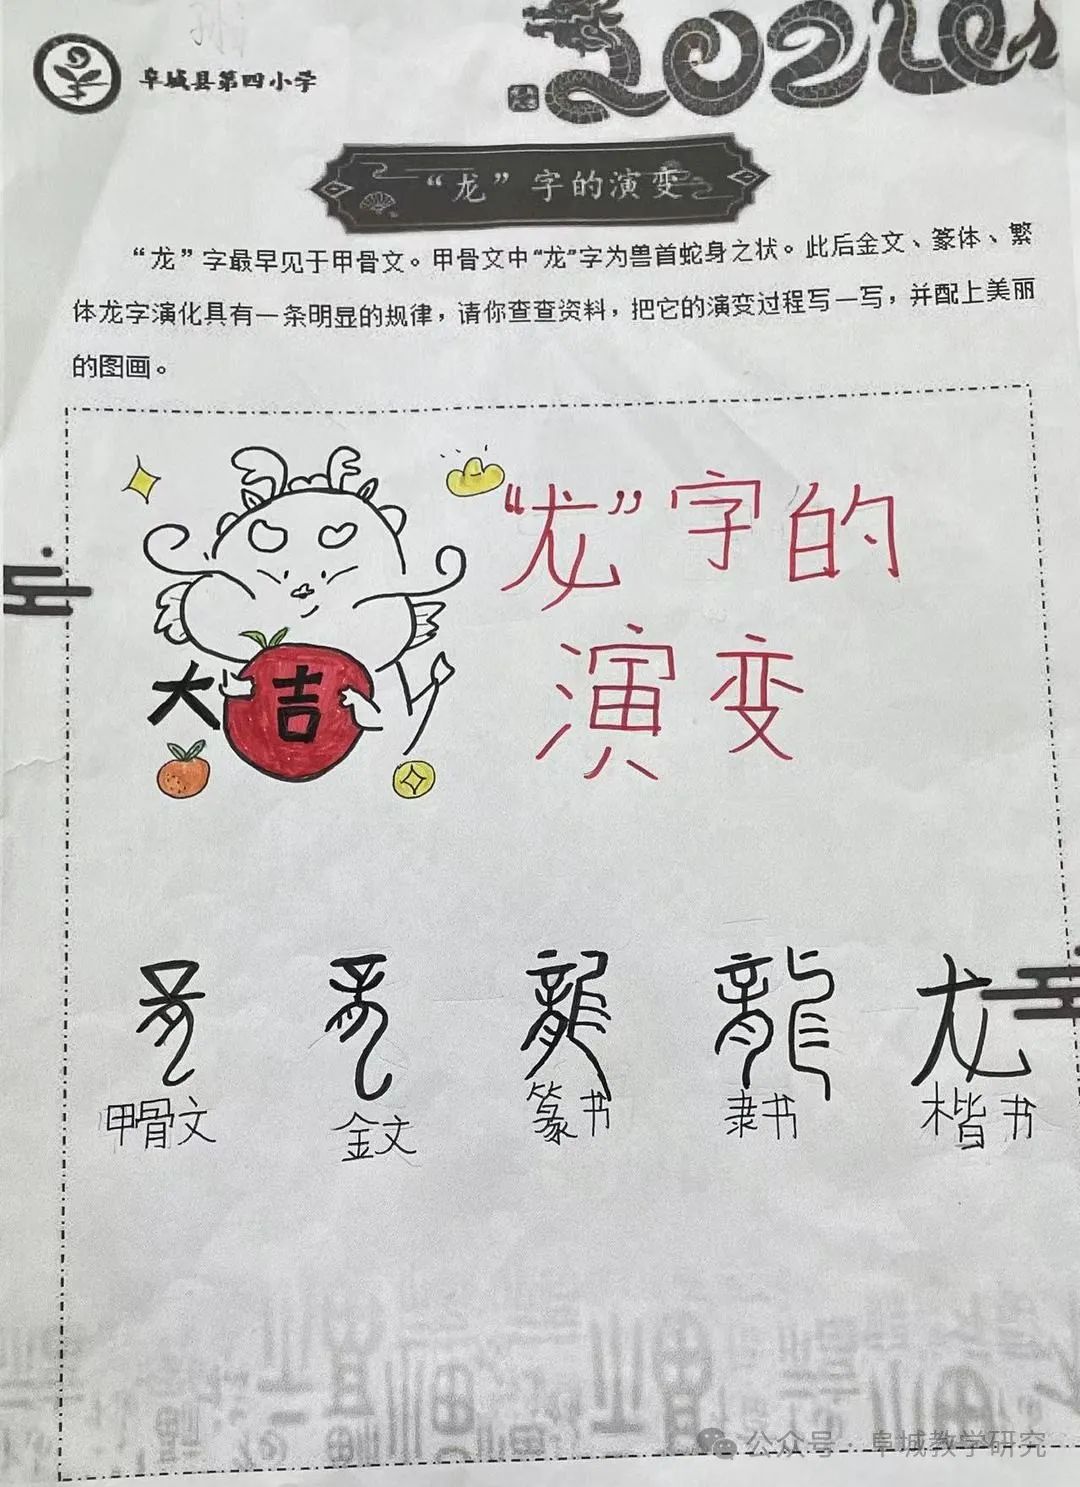 阜城县第四小学
2024
“龙”字的演变
“龙”字最早见于甲骨文。甲骨文中“龙”字为兽首蛇身之状。此后金文、篆体、繁
体龙字演化具有一条明显的规律，请你查查资料，把它的演变过程写一写，并配上美丽
的图画。
“龙”字的
演变
大吉
龍 龍 龍 龍 龙
甲骨文 金文 篆书 隶书 楷书
公众号·阜城教学研究